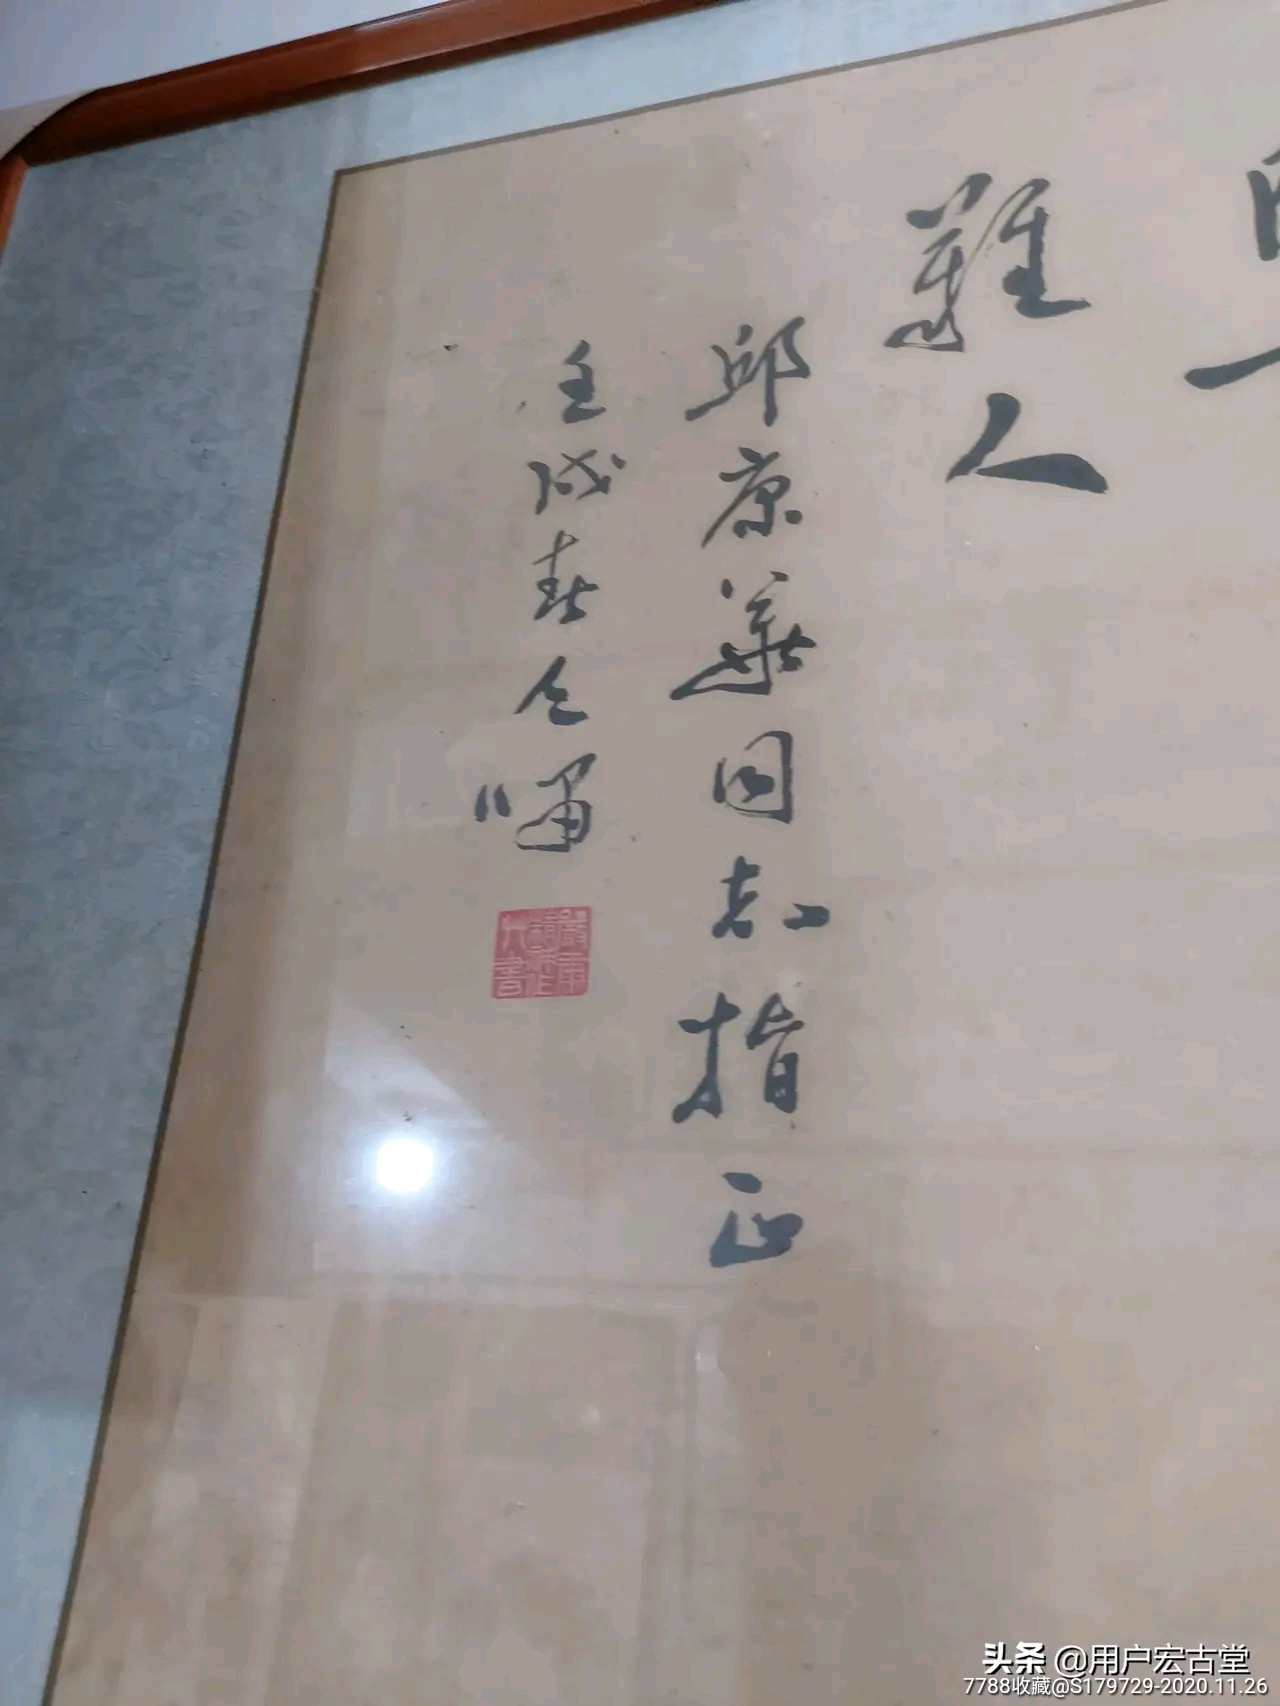 難人
邱康華同知指正
壬戌春人嘯
头条 @用户宏古堂
7788收藏@S179729-2020.11.26